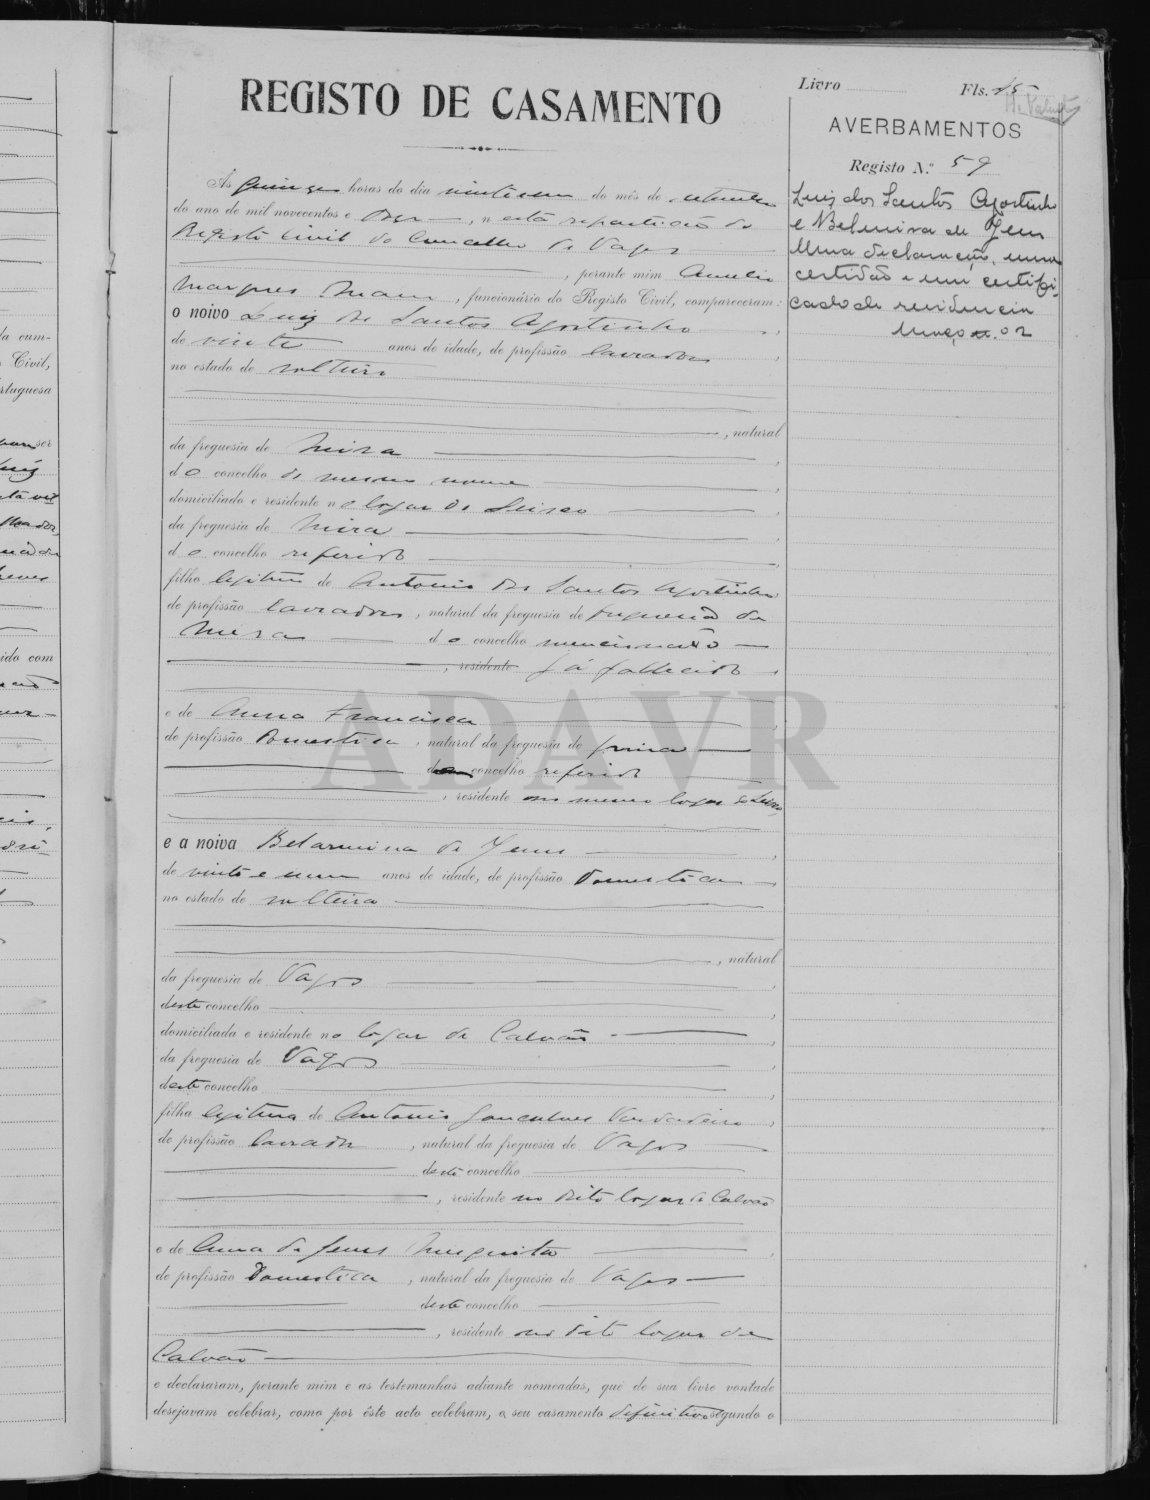 la cum-
Civil,
rtuguesa
ser
ido com
REGISTO DE CASAMENTO
Livro
Fls. 15
AVERBAMENTOS
Registo N.º 59
Luiz dos Santos Agostinho
e Belmira de Jesus
Uma declaração, uma
certidão e um certifi-
cado de residencia
Março . 02
Ás quinze horas do dia vinte e um do mês de
do ano de mil novecentos e , n esta repartição do
Registo Civil do Concelho de Vagos
, perante mim Amelio
Marques , funcionário do Registo Civil, compareceram:
o noivo Luiz dos Santos Agostinho
de vinte anos de idade, de profissão lavrador
no estado de solteiro
, natural
da freguesia de Mira
d o concelho do mesmo nome
domiciliado e residente no logar do Seixo
da freguesia de Mira
d o concelho referido
filho legitimo de Antonio dos Santos Agostinho
de profissão lavrador, natural da freguesia de freguesia de
Mira d o concelho mencionado
, residente já fallecido
e de Anna Francisca
de profissão Domestica, natural da freguesia de Mira
concelho referido
, residente no mesmo logar do Seixo,
e a noiva Belarmina de Jesus
de vinte e um anos de idade, de profissão Domestica
no estado de solteira
, natural
da freguesia de Vagos
deste concelho
domiciliada e residente no logar de Calvão
da freguesia de Vagos
deste concelho
filha legitima de Antonio Goncalves Verdadeiro
de profissão lavrador, natural da freguesia de Vagos
deste concelho
, residente no dito logar de Calvão
e de Anna de Jesus Mesquita
de profissão Domestica, natural da freguesia de Vagos
deste concelho
, residente no dito logar de
Calvão
e declararam, perante mim e as testemunhas adiante nomeadas, que de sua livre vontade
desejavam celebrar, como por êste acto celebram, o seu casamento definitivo segundo o
ADAVR